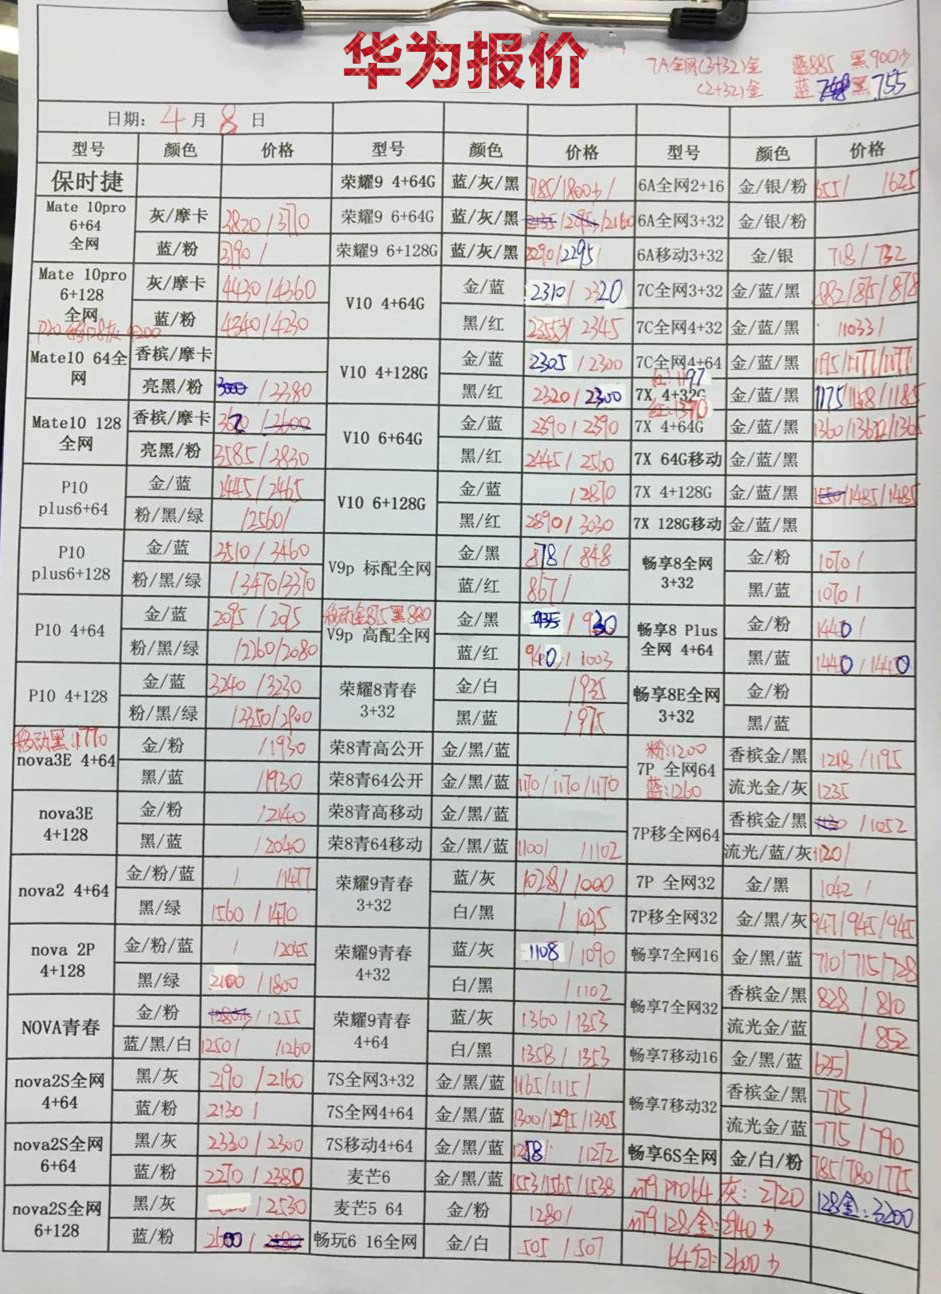 华为报价
7A全网(3+32)金 蓝885 黑900
(2+32)金 蓝 黑 755
日期: 4 月 8 日
型号 颜色 价格 型号 颜色 价格 型号 颜色 价格
保时捷 荣耀9 4+64G 蓝/灰/黑 785/1800 6A全网2+16 金/银/粉 655/ 1625
Mate 10pro 6+64 全网 灰/摩卡 3820/3770 荣耀9 6+64G 蓝/灰/黑 6A全网3+32 金/银/粉
蓝/粉 荣耀9 6+128G 蓝/灰/黑 2290/2295 6A移动3+32 金/银 718/732
Mate 10pro 6+128 全网 灰/摩卡 4430/4360 V10 4+64G 金/蓝 2310/2320 7C全网3+32 金/蓝/黑
蓝/粉 4340/4230 黑/红 2345 7C全网4+32 金/蓝/黑 1033/
Mate10 64全网 香槟/摩卡 V10 4+128G 金/蓝 2305/2300 7C全网4+64 金/蓝/黑
亮黑/粉 /3380 黑/红 2320/2300 7X 4+32G 红:1197 金/蓝/黑 1175/1168/1185
Mate10 128全网 香槟/摩卡 V10 6+64G 金/蓝 2590/2590 7X 4+64G 红:1370 金/蓝/黑
亮黑/粉 3585/3830 黑/红 2445/2560 7X 64G移动 金/蓝/黑
P10 plus6+64 金/蓝 2445/2465 V10 6+128G 金/蓝 /2870 7X 4+128G 金/蓝/黑 /1485/1485
粉/黑/绿 /2560/ 黑/红 2890/3030 7X 128G移动 金/蓝/黑
P10 plus6+128 金/蓝 3510/3460 V9p 标配全网 金/黑 878/848 畅享8全网 3+32 金/粉 1070/
粉/黑/绿 /3470/3370 蓝/红 867/ 黑/蓝 1070/
P10 4+64 金/蓝 2095/2075 移动金875黑880 V9p 高配全网 金/黑 /930 畅享8 Plus 全网 4+64 金/粉 1440/
粉/黑/绿 /2260/2080 蓝/红 940/1003 黑/蓝 1440/1440
P10 4+128 金/蓝 3240/3230 荣耀8青春 3+32 金/白 /935 畅享8E全网 3+32 金/粉
粉/黑/绿 /2350/2900 黑/蓝 /975 黑/蓝
移动黑:1770 nova3E 4+64 金/粉 /1930 荣8青高公开 金/黑/蓝 粉:1200 7P 全网64 蓝:1260 香槟金/黑 1218/1195
黑/蓝 /1930 荣8青64公开 金/黑/蓝 1170/1170/1170 流光金/灰 1235
nova3E 4+128 金/粉 /2140 荣8青高移动 金/黑/蓝 7P移全网64 香槟金/黑 /1052
黑/蓝 /2040 荣8青64移动 金/黑/蓝 1100/ /1102 流光/蓝/灰 1120/
nova2 4+64 金/粉/蓝 / /1477 荣耀9青春 3+32 蓝/灰 1028/1000 7P 全网32 金/黑 1042/
黑/绿 1560/1470 白/黑 /1025 7P移全网32 金/黑/灰 947/945/945
nova 2P 4+128 金/粉/蓝 / /2045 荣耀9青春 4+32 蓝/灰 1108/1090 畅享7全网16 金/黑/蓝 710/715/728
黑/绿 2100/1800 白/黑 /1102 畅享7全网32 香槟金/黑 828/810
NOVA青春 金/粉 /1255 荣耀9青春 4+64 蓝/灰 1360/1353 流光金/蓝 /852
蓝/黑/白 1250/ /1260 白/黑 1358/1353 畅享7移动16 金/黑/蓝 635/
nova2S全网 4+64 黑/灰 2190/2160 7S全网3+32 金/黑/蓝 1165/1115/ 畅享7移动32 香槟金/黑 775/
蓝/粉 2130/ 7S全网4+64 金/黑/蓝 1300/1295/1305 流光金/蓝 775/790
nova2S全网 6+64 黑/灰 2330/2300 7S移动4+64 金/黑/蓝 1258/ /1272 畅享6S全网 金/白/粉 785/780/775
蓝/粉 2270/2380 麦芒6 金/黑/蓝 1553/1565/1538 m9 Pro64 灰:2720 128金:3200
nova2S全网 6+128 黑/灰 /2530 麦芒5 64 金/粉 1280/ m9 128金:2940
蓝/粉 2600/ 畅玩6 16全网 金/白 505/507 64金:2600